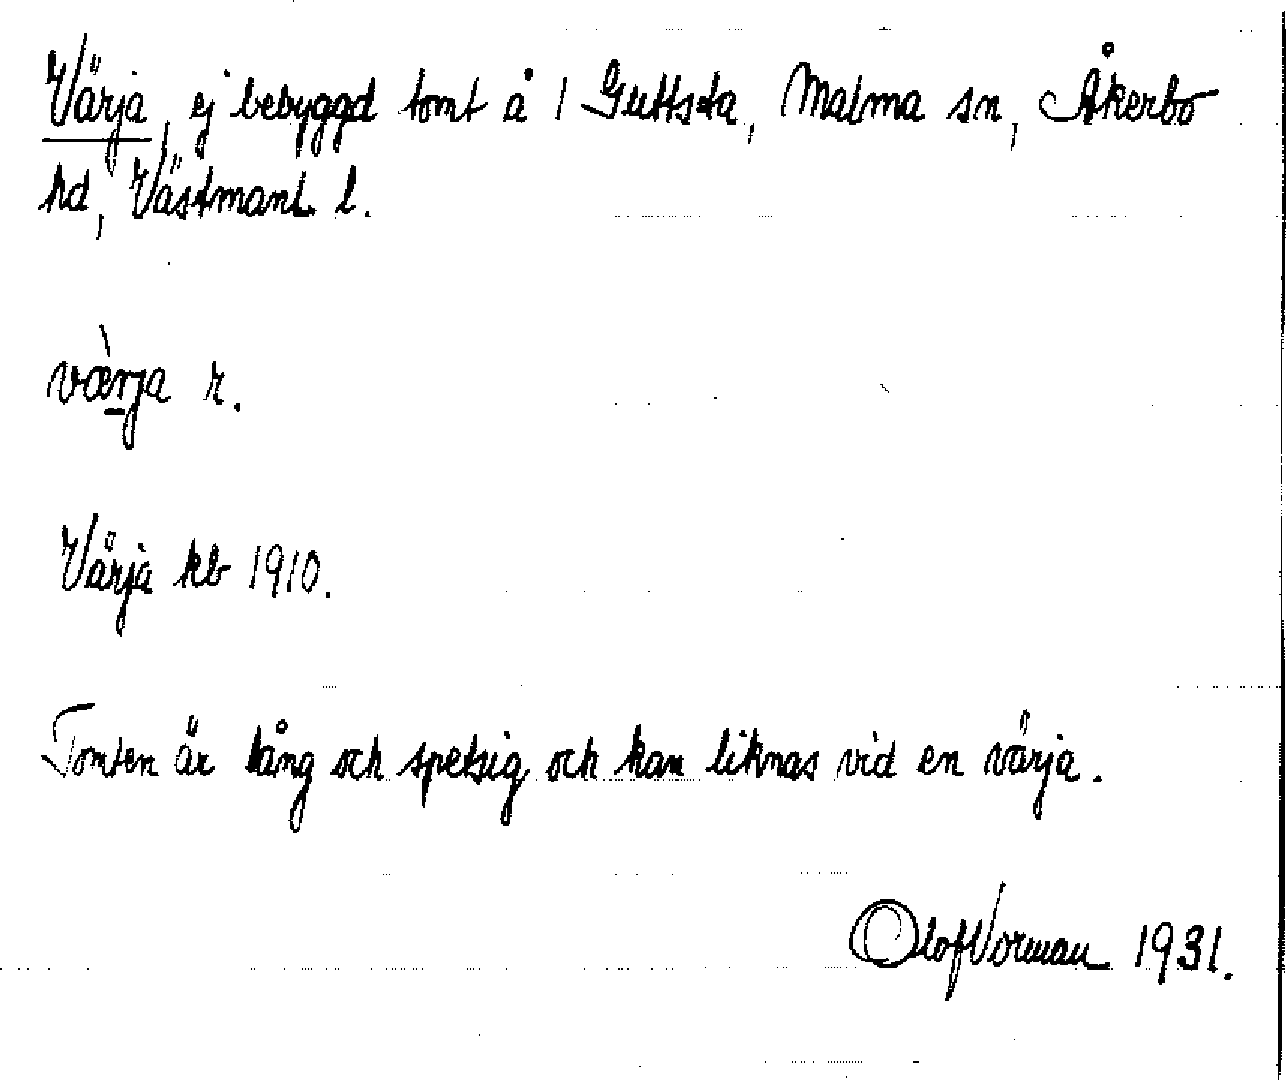 Värja, ej bebyggd tomt å 1 Guttsta, Malma sn, Åkerbo
hd, Västmanl. l.
væ̀rja r.
Värja kb 1910.
Tomten är lång och spetsig och kan liknas vid en värja.
Olof Vorman 1931.